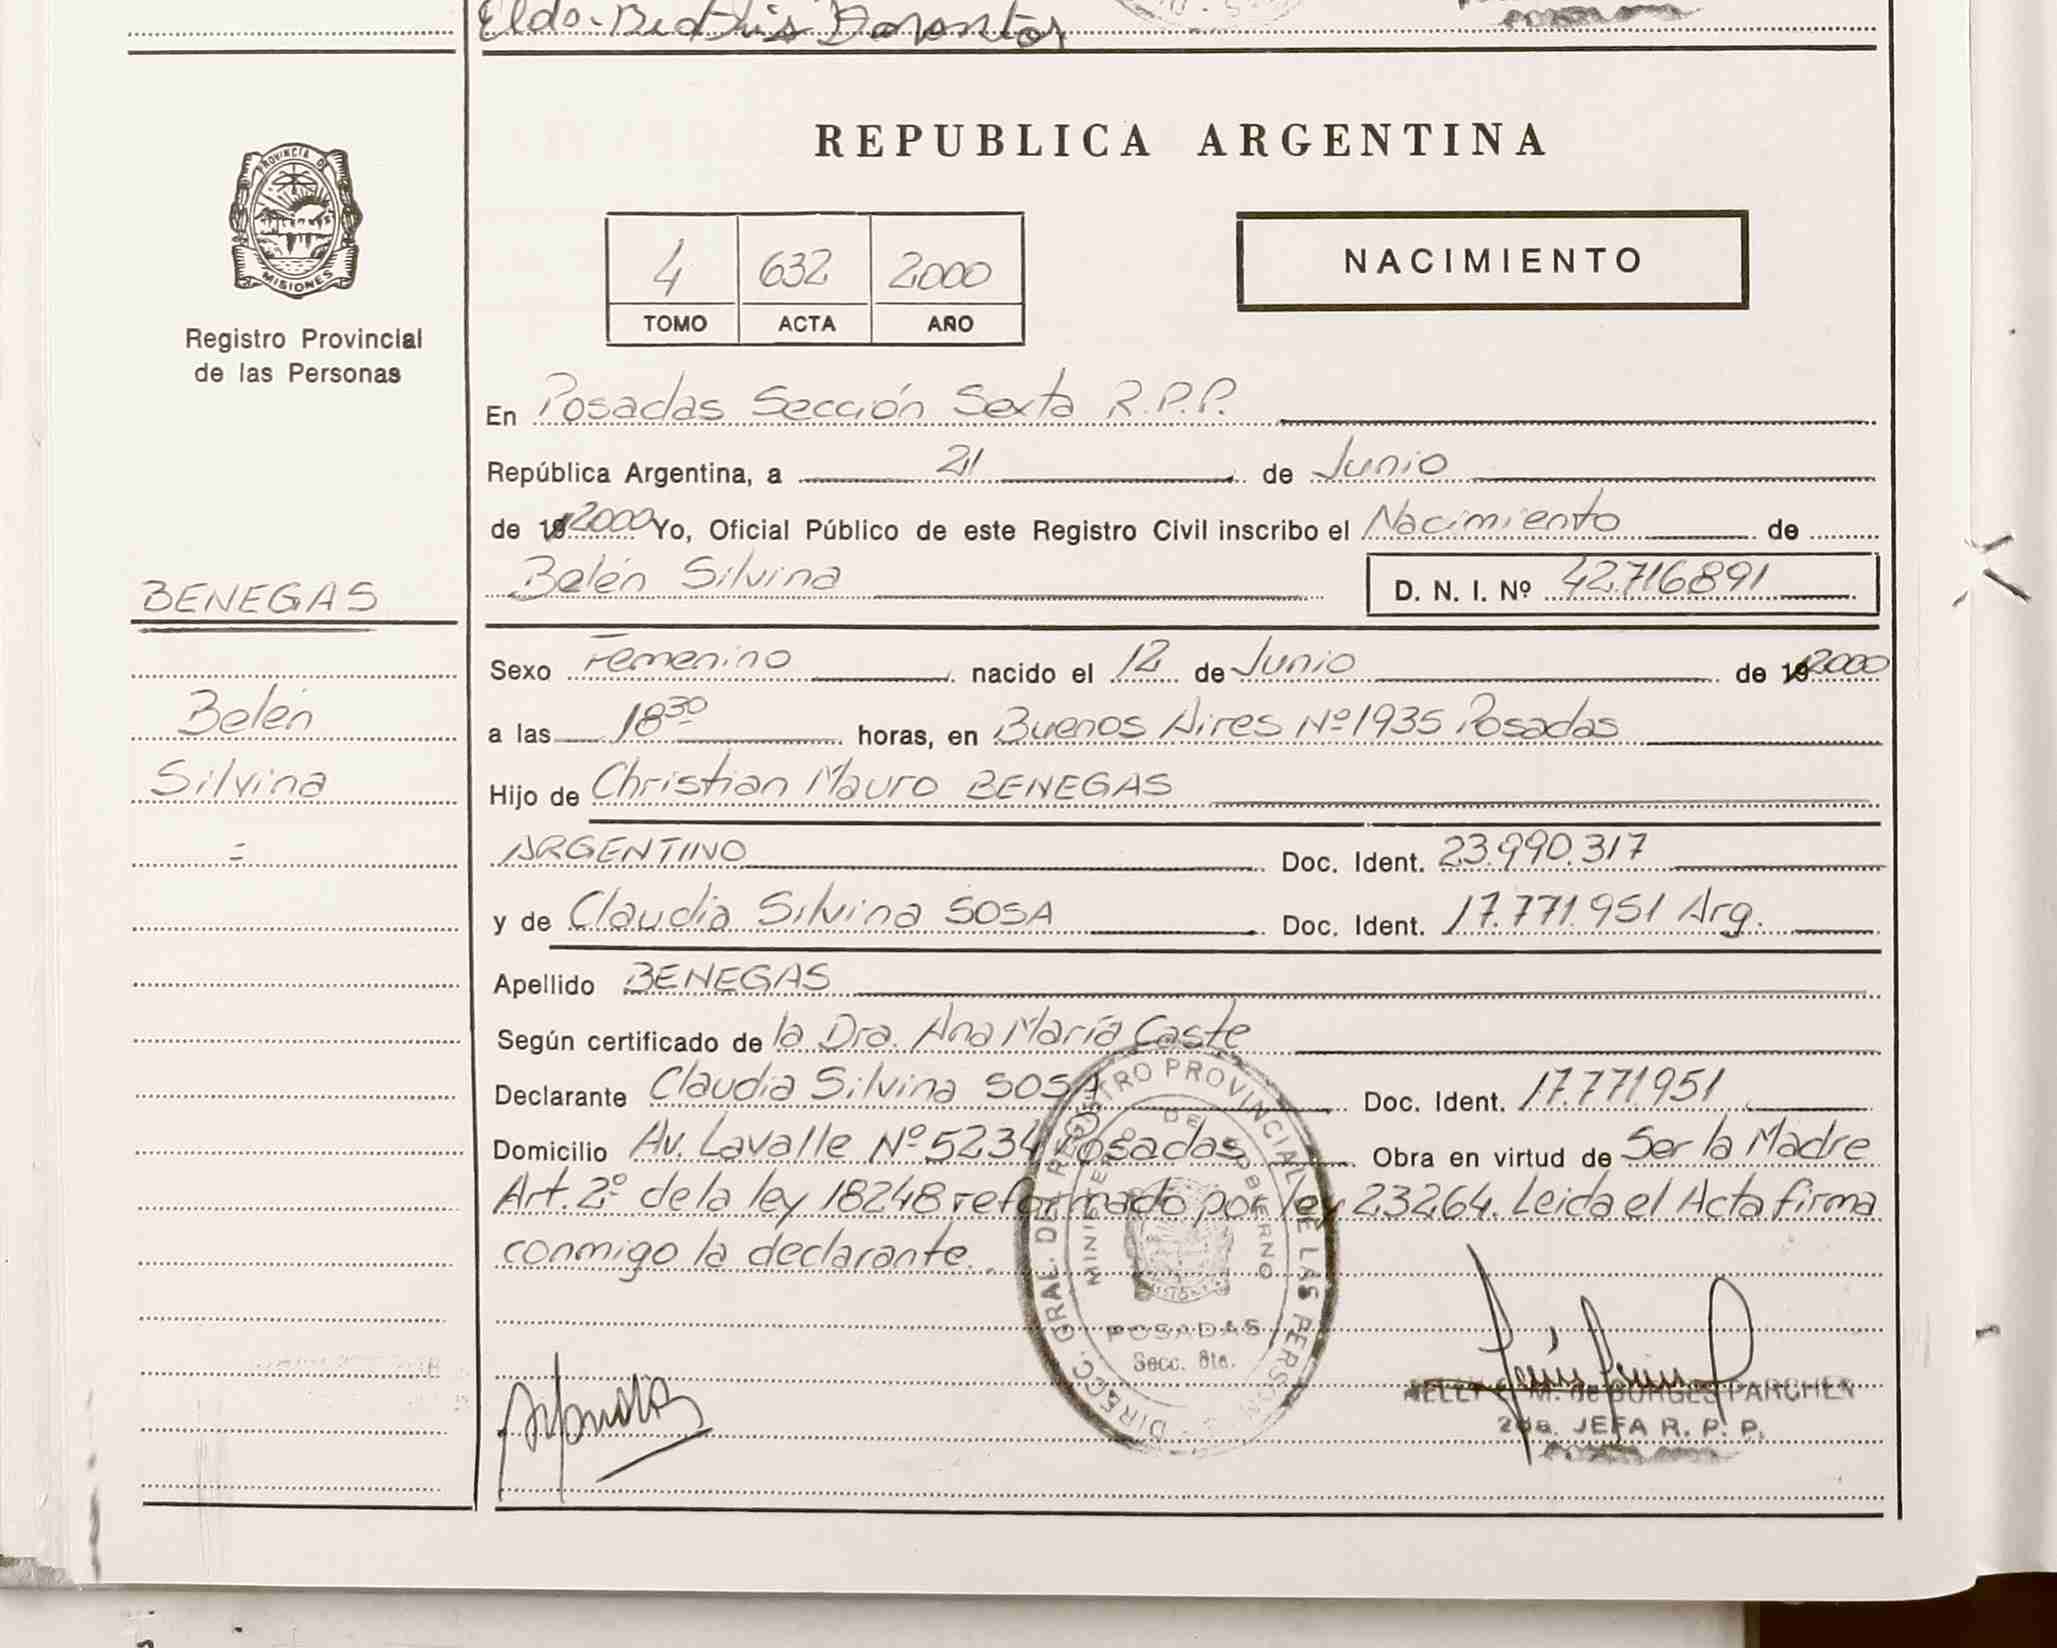 PROVINCIA D
MISIONES
Registro Provincial
de las Personas
REPUBLICA ARGENTINA
4 632 2000
TOMO ACTA AÑO
NACIMIENTO
En Posadas Sección Sexta R.P.P.
República Argentina, a 21 de Junio
de 19 2000 Yo, Oficial Público de este Registro Civil inscribo el Nacimiento de
BENEGAS
Belén Silvina D. N. I. Nº 42.716891
Sexo Femenino nacido el 12 de Junio de 19 2000
Belén
a las 18 30 horas, en Buenos Aires Nº 1935 Posadas
Silvina
Hijo de Christian Mauro BENEGAS
=
ARGENTINO Doc. Ident. 23.990.317
y de Claudia Silvina SOSA Doc. Ident. 17.771.951 Arg.
Apellido BENEGAS
Según certificado de la Dra. Ana María Caste
Declarante Claudia Silvina SOSA Doc. Ident. 17.771951
Domicilio Av. Lavalle Nº 5234 Posadas Obra en virtud de Ser la Madre
Art. 2º de la ley 18248 reformado por ley 23264. Leida el Acta firma
conmigo la declarante.
DIRECC. GRAL. DEL REGISTRO PROVINCIAL DE LAS PERSON
MINISTERIO DE GOBIERNO
POSADAS
Secc. 6ta.
NELLY M. de BORGES PARCHEN
2da. JEFA R. P. P.